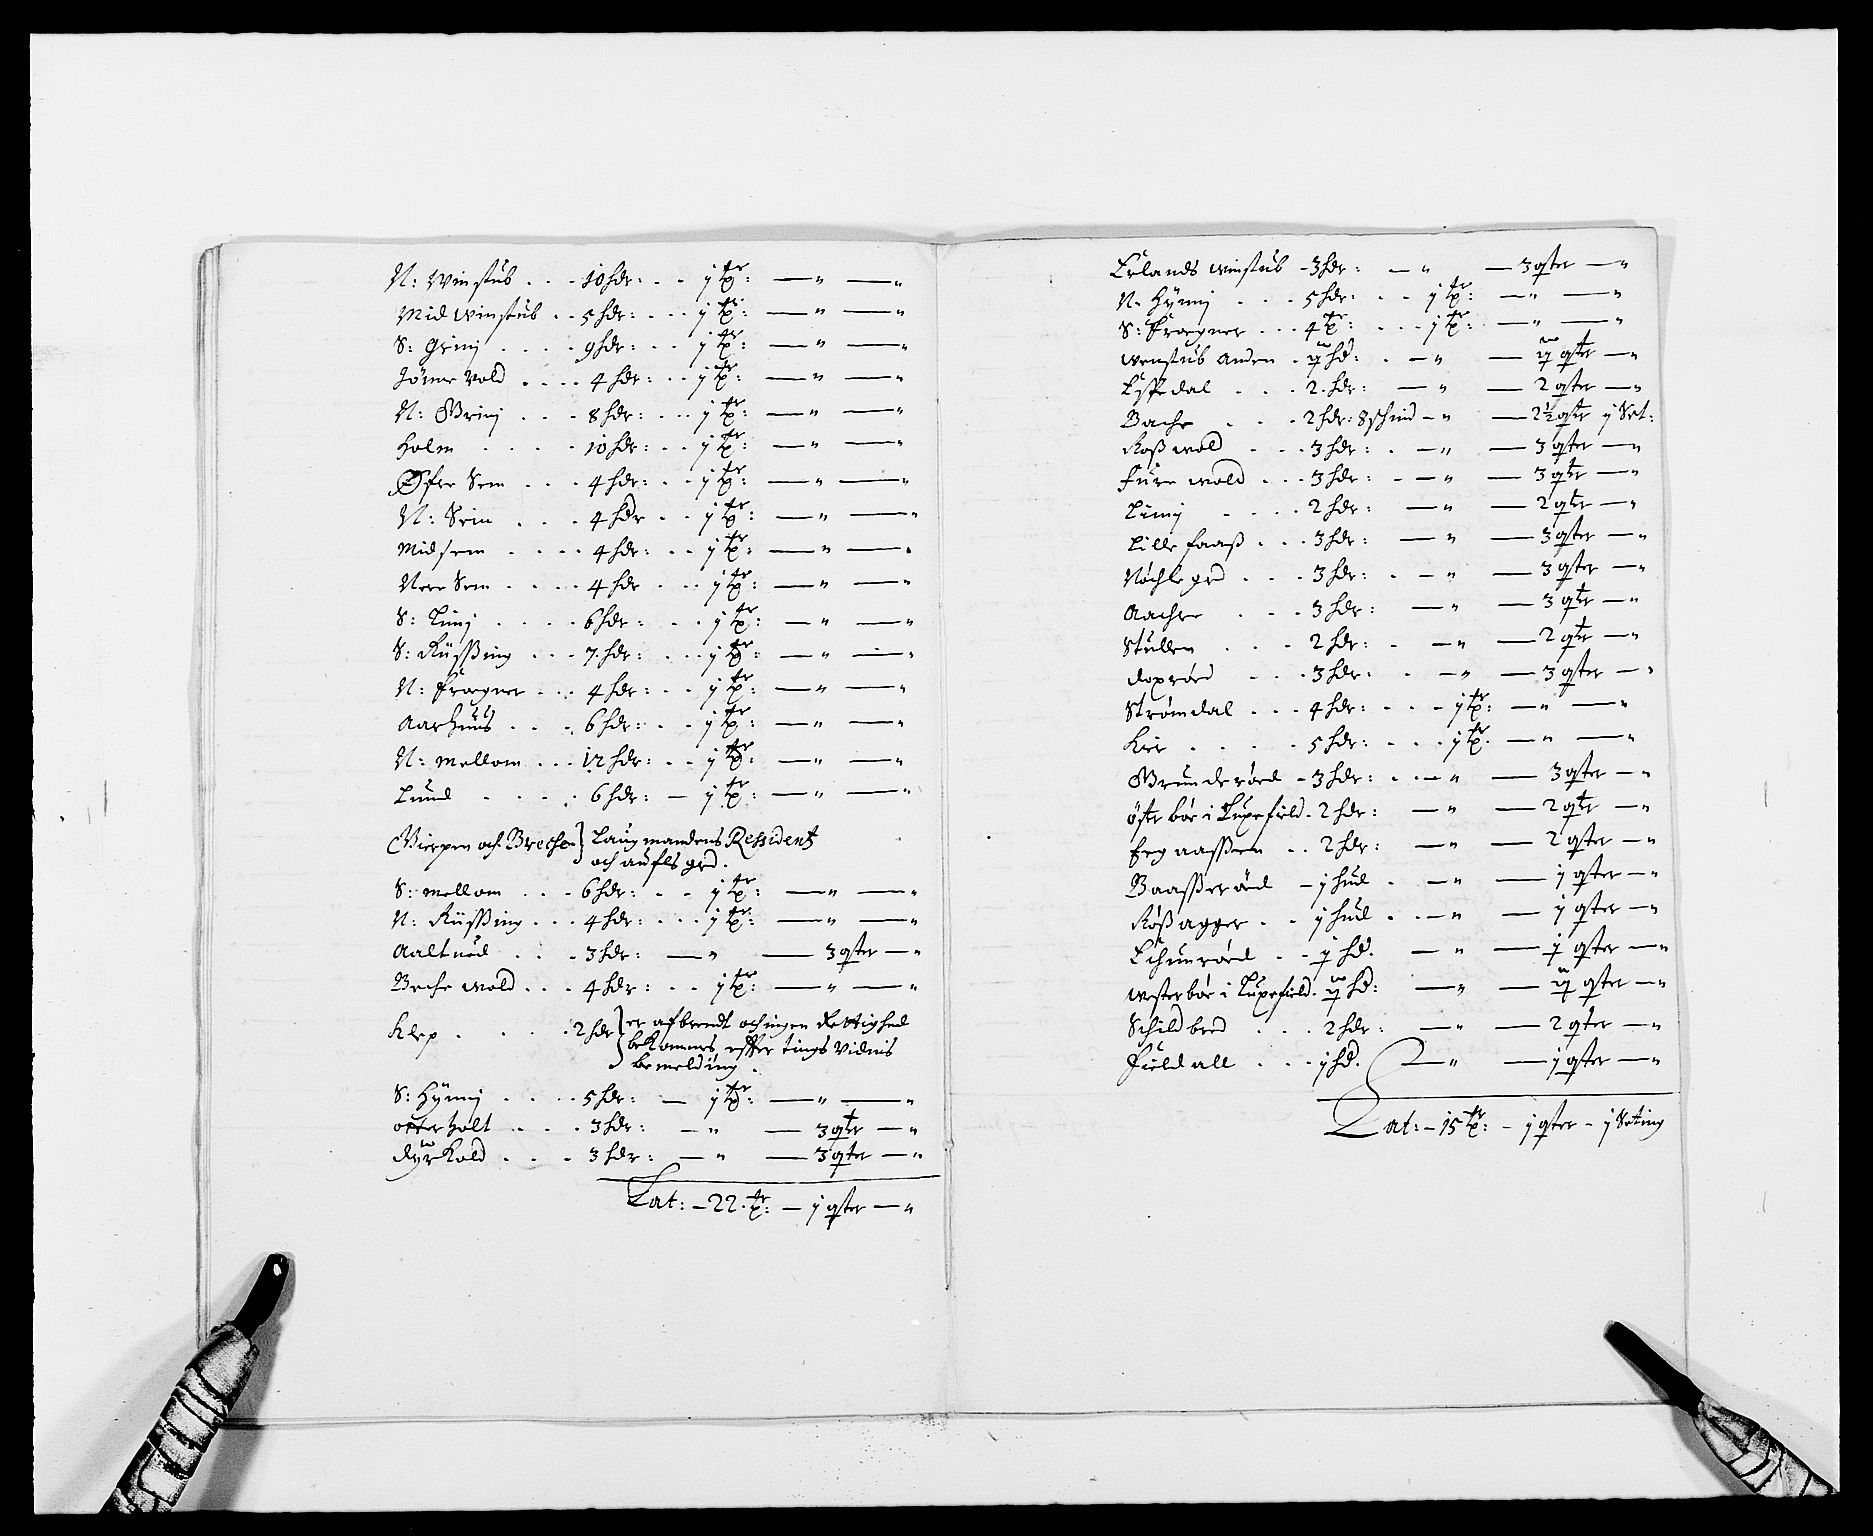 N: Winstub . . . 10 hdr: . . j tr: — " — "
Mid Winstub . . 5 hdr: . . . j tr: — " — "
S: Grinj . . . . 9 hdr: . . j tr: — " — "
Jörne Vold . . . . 4 hdr: . . j tr: — " — "
N: Grinj . . . 8 hdr: . . . j tr: — " — "
Holm . . . . 10 hdr: . . j tr: — " — "
Øfre Sem . . . 4 hdr: . . j tr: — " — "
N: Sem . . . 4 hdr . . j tr: — " — "
Midsem . . . . 4 hdr: . . j tr: — " — "
Nere Sem . . . . 4 hdr . . . j tr: — " — "
S: Linj . . . . 6 hdr: . . j tr: — " — "
S: Rüssing . . . 7 hdr: . . . j tr: — " — "
N: Fragner . . . 4 hdr: . . j tr: — " — "
Aarhuus . . . . 6 hdr: . . j tr: — " — "
N: mellom . . . 12 hdr: . . j tr: — " — "
Lund . . . . 6 hdr: — j tr: — " — "
Vierpen och Breche } Laugmandens Ressidentz
och aufls grd.
S: mellom . . . 6 hdr: . . j tr: — " — "
N: Rüssing . . . 4 hdr: . . . j tr: — " — "
Aaltued . . . 3 hdr: — " — 3 qster — "
Beche wold . . . 4 hdr: . . j tr: — " — "
Klep . . . . . 2 hdr } er afbrendt och ingen Rettighed
bekommes effter tings Vidnis
bemelding .
S: Hÿnnj . . . . 5 hdr: — j tr: — " — "
otterholt . . . 3 hdr: — " — 3 qter — "
dyrkold . . . 3 hdr: — " — 3 qter — "
Lat: — 22 tr: — j qster — "
Erlands winstub - 3 hdr: — " — 3 qster — "
N. Hÿnnj . . . 5 hdr: . . j tr: — " — "
S: Fragner . . . 4 tr: . . . j tr: — " — "
wenstub Anden . j hd: . — " — j qster — "
Espedal . . . 2. hdr: — " — 2 qster — "
Bache . . . 2 hdr: 8 schind — " — 2½ qster j Set:
Roß wold . . . 3 hdr: . — " — 3 qster — "
Fure wold . . . 3 hdr: . — " — 3 qter — "
Linnj . . . . 2 hdr: — " — 2 qter — "
Lille faaß . . . 3 hdr: — " — 3 qster — "
Nøchlegrd . . . 3 hdr: . — " — 3 qster — "
Aachre . . . 3 hdr: — " — 3 qter — "
Stullen . . . 2 hdr: . — " — 2 qter — "
doxrød . . . 3 hdr: . — " — 3 qster — "
Strømdal . . . 4 hdr: . . . j tr: — " — "
Kier . . . . 5 hdr: . . . j tr. — " — "
Brunderød - 3 hdr: . . — " — 3 qster — "
öster böe i Luxefield. 2 hdr: — " — 2 qter — "
Eegaassen . . 2 hdr: — " — 2 qster — "
Baasserød - j hud . — " — j qster — "
Røßagger . . j hud . . — " — j qster — "
Echunrød . . j hd. — " — j qster — "
westerböe i Luxefield. j hd: — " — j qster — "
Schildbred . . . 2 hdr: — " — 2 qter — "
Fieldall . . . j hd. — " — j qster — "
Lat: — 15 tr: - j qster - j Setinj